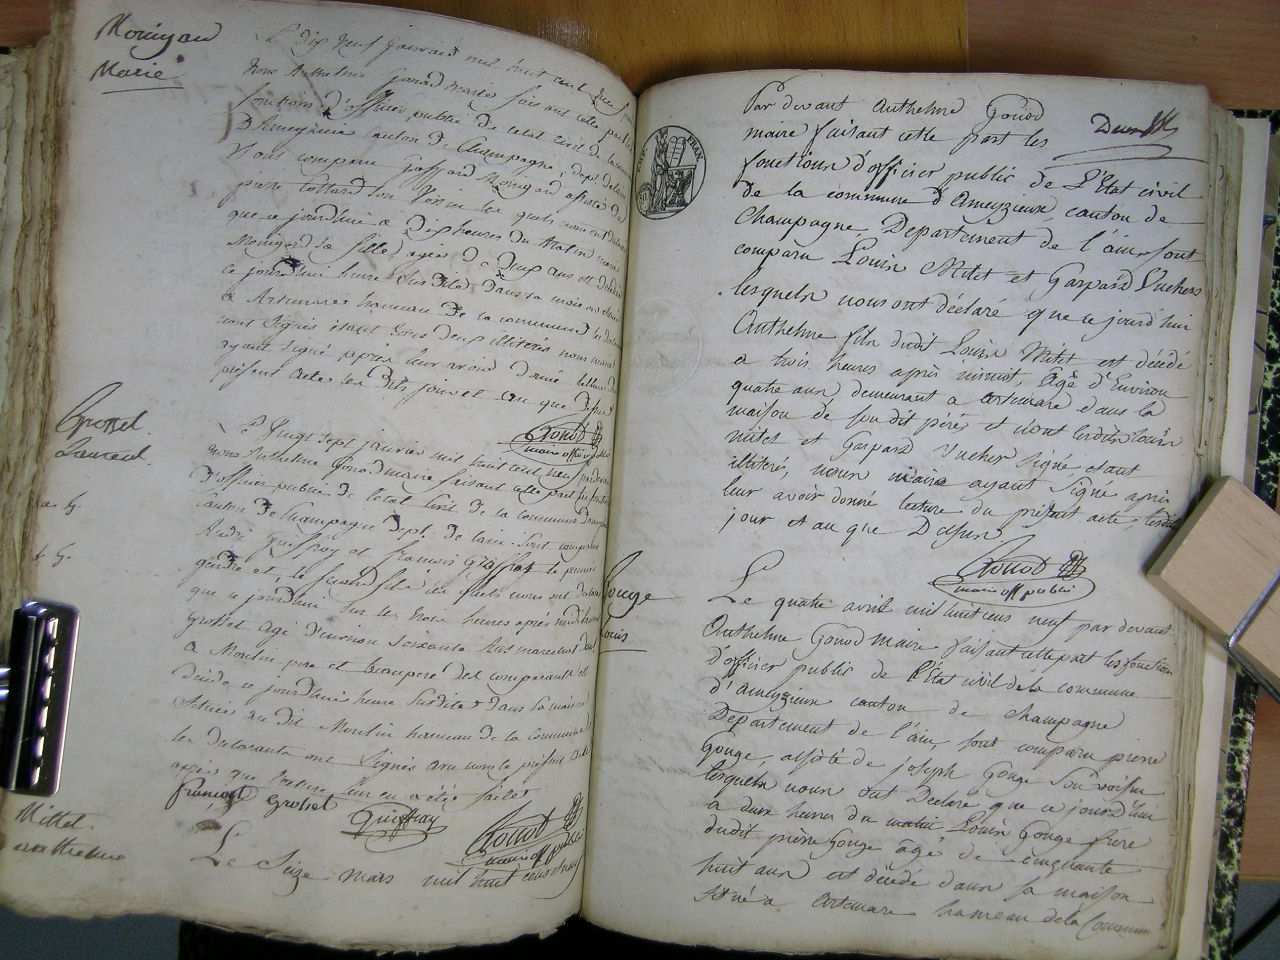 Mouigard
Marie
Le Dix Neuf Janvier mil huit cent neuf
nous Anthelme Gonod maire faisant cette part les
fonctions d'officier public de l'etat civil de la commune
D'Ameyzieux canton de Champagne, dept. de lain
Nous compare Gaspard Mouigard assisté de
pierre son Voisin les quels nous ont déclaré
que ce jourdhui a Dix heures du Matin
Mouigard sa fille agée de Deux ans est décédée
ce jourdhui heure Sus dite Dans sa maison
a Artemare hameau de la commune les
non Signés étant tous deux illiterés nous maire
ayant signé après leur avoir donné lecture du
présent acte les dits jour et an que Dessus
Gonod
maire off public
Grossel
Laurent
Le Vingt Sept janvier mil huit cent neuf pardevant
nous Anthelme Gonod maire faisant cette part les fonctions
D'officier public de l'etat Civil de la commune D'ameyzieux
Canton de Champagne Dept. de lain. Sont comparus
André Guiffray et francois Grossel le premier
gendre et le Second fils les quels nous ont déclaré
que ce jourdhui Sur les trois heures après midi
Grossel agé d'environ Soixante
a Moulin pere et beaupere des comparants est
Décédé ce jourdhuit heure Susdite Dans Sa maison
Située au dit Moulin hameau de la commune
les déclarants ont Signés avec nous le présent acte
après que lecture leur en a été faite
francois Grossel
Guiffray
Gonod
maire off public
Mittet
anthelme
Le Seize mars mil huit cens neuf
Par devant Anthelme Gonod
maire faisant cette part les
Deux
fonctions d'officier public de L'Etat civil
de la commune d'Ameyzieux, canton de
Champagne, Departement de l'ain, sont
comparu Louis Mitet et Gaspard Vucher
lesquels nous ont déclaré que ce jourd'hui
Anthelme fils dudit Louis Mitet est décédé
a trois heures après minuit, âgé d'Environ
quatre ans demeurant a Artemare dans la
maison de son dit père, et n'ont lesdits Louis
mitet et Gaspard Vucher Signé, etant
illiteré, nous maire ayant Signé après
leur avoir donné lecture du présent acte lesdits
jour et an que Dessus
Gonod
maire off public
Gouge
Louis
Le quatre avril mil huit cens neuf par devant
Anthelme Gonod maire faisant cette part les fonction
D'officier public de l'Etat civil de la commune
d'Ameyzieux canton de Champagne
Departement de l'ain, sont comparu pierre
Gouge, assisté de joseph Gouge Son voisin
lesquels nous ont Déclaré que ce jourd'hui
a deux heures du matin Louis Gouge frere
dudit pierre Gouge âgé de cinquante
huit ans est décédé dans sa maison
Située a Artemare hameau de la Commune